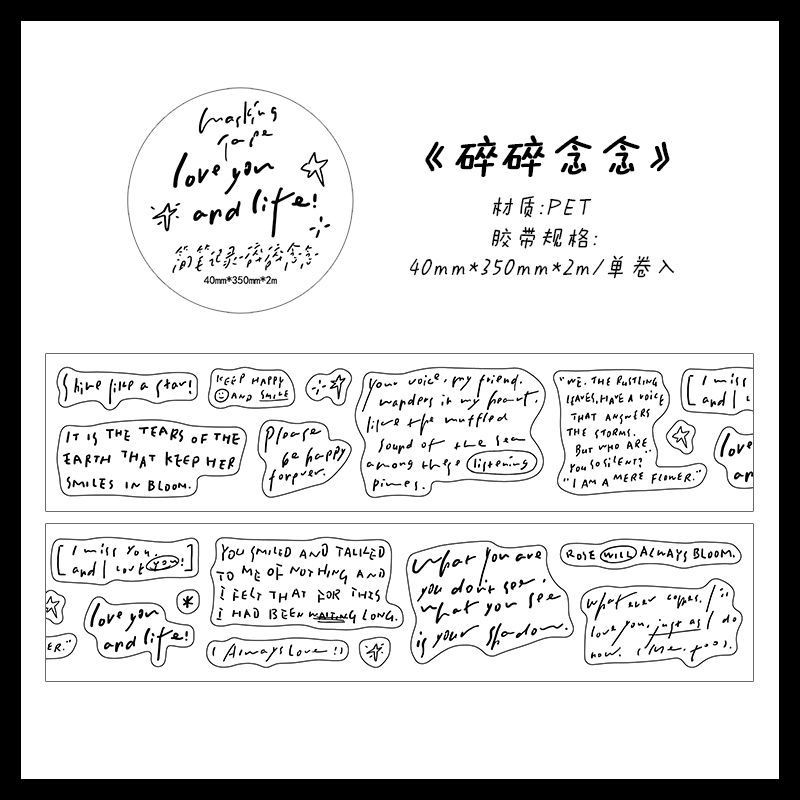 masking
tape
love you
and life!
简笔记录-碎碎念念
40mm*350mm*2m
《碎碎念念》
材质:PET
胶带规格:
40mm*350mm*2m/单卷入
Shine like a star!
KEEP HAPPY
AND SMILE
IT IS THE TEARS OF THE
EARTH THAT KEEP HER
SMILES IN BLOOM.
Please
be happy
forever.
your voice, my friend.
wanders in my heart.
like the muffled
sound of the sea
among these listening
pines.
"WE, THE RUSTLING
LEAVES, HAVE A VOICE
THAT ANSWERS
THE STORMS.
BUT WHO ARE
YOU SO SILENT?"
"I AM A MERE FLOWER."
[ I miss
and I
love
an
[ I miss you. ]
and I love you!
ER."
love you
and life!
YOU SMILED AND TALKED
TO ME OF NOTHING AND
I FELT THAT FOR THIS
I HAD BEEN WAITING LONG.
( Always Love !)
what you are
you don't see,
what you see
is your shadow.
ROSE WILL ALWAYS BLOOM.
what ever comes, I'll
love you, just as I do
now.